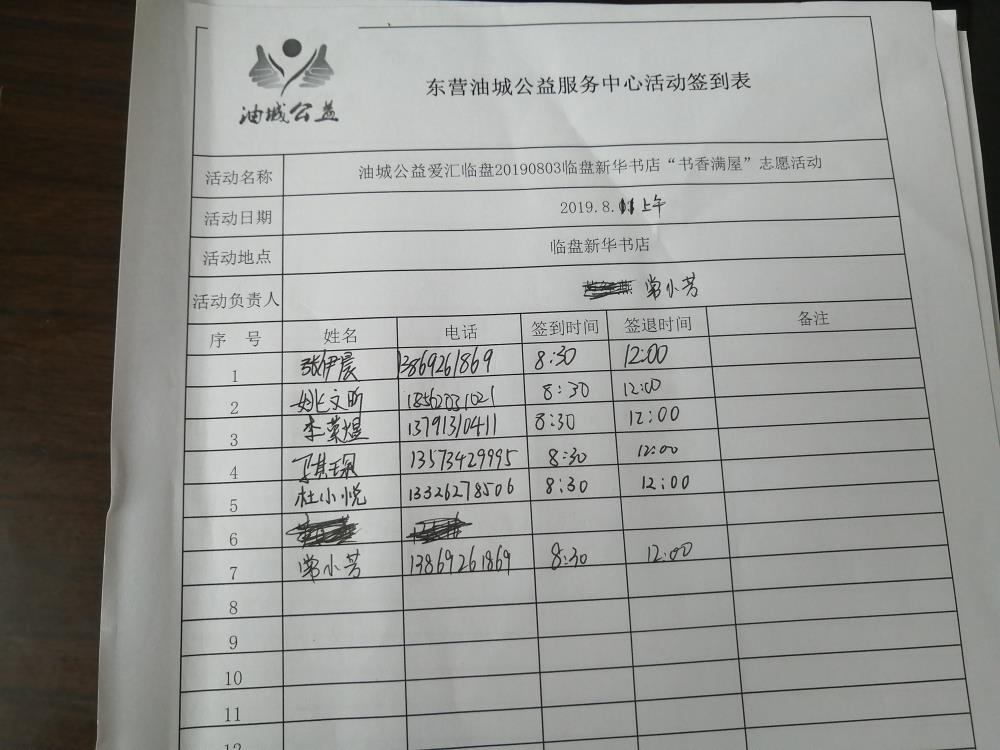 油城公益
东营油城公益服务中心活动签到表
活动名称 油城公益爱汇临盘20190803临盘新华书店“书香满屋”志愿活动
活动日期 2019.8. 上午
活动地点 临盘新华书店
活动负责人 常小芳
序 号 姓名 电话 签到时间 签退时间 备注
1 张伊晨 13869261869 8:30 12:00
2 姚文昕 18562031021 8:30 12:00
3 李荣煜 13791310411 8:30 12:00
4 13573429995 8:30 12:00
5 杜小悦 13326278506 8:30 12:00
6
7 常小芳 13869261869 8:30 12:00
8
9
10
11
12